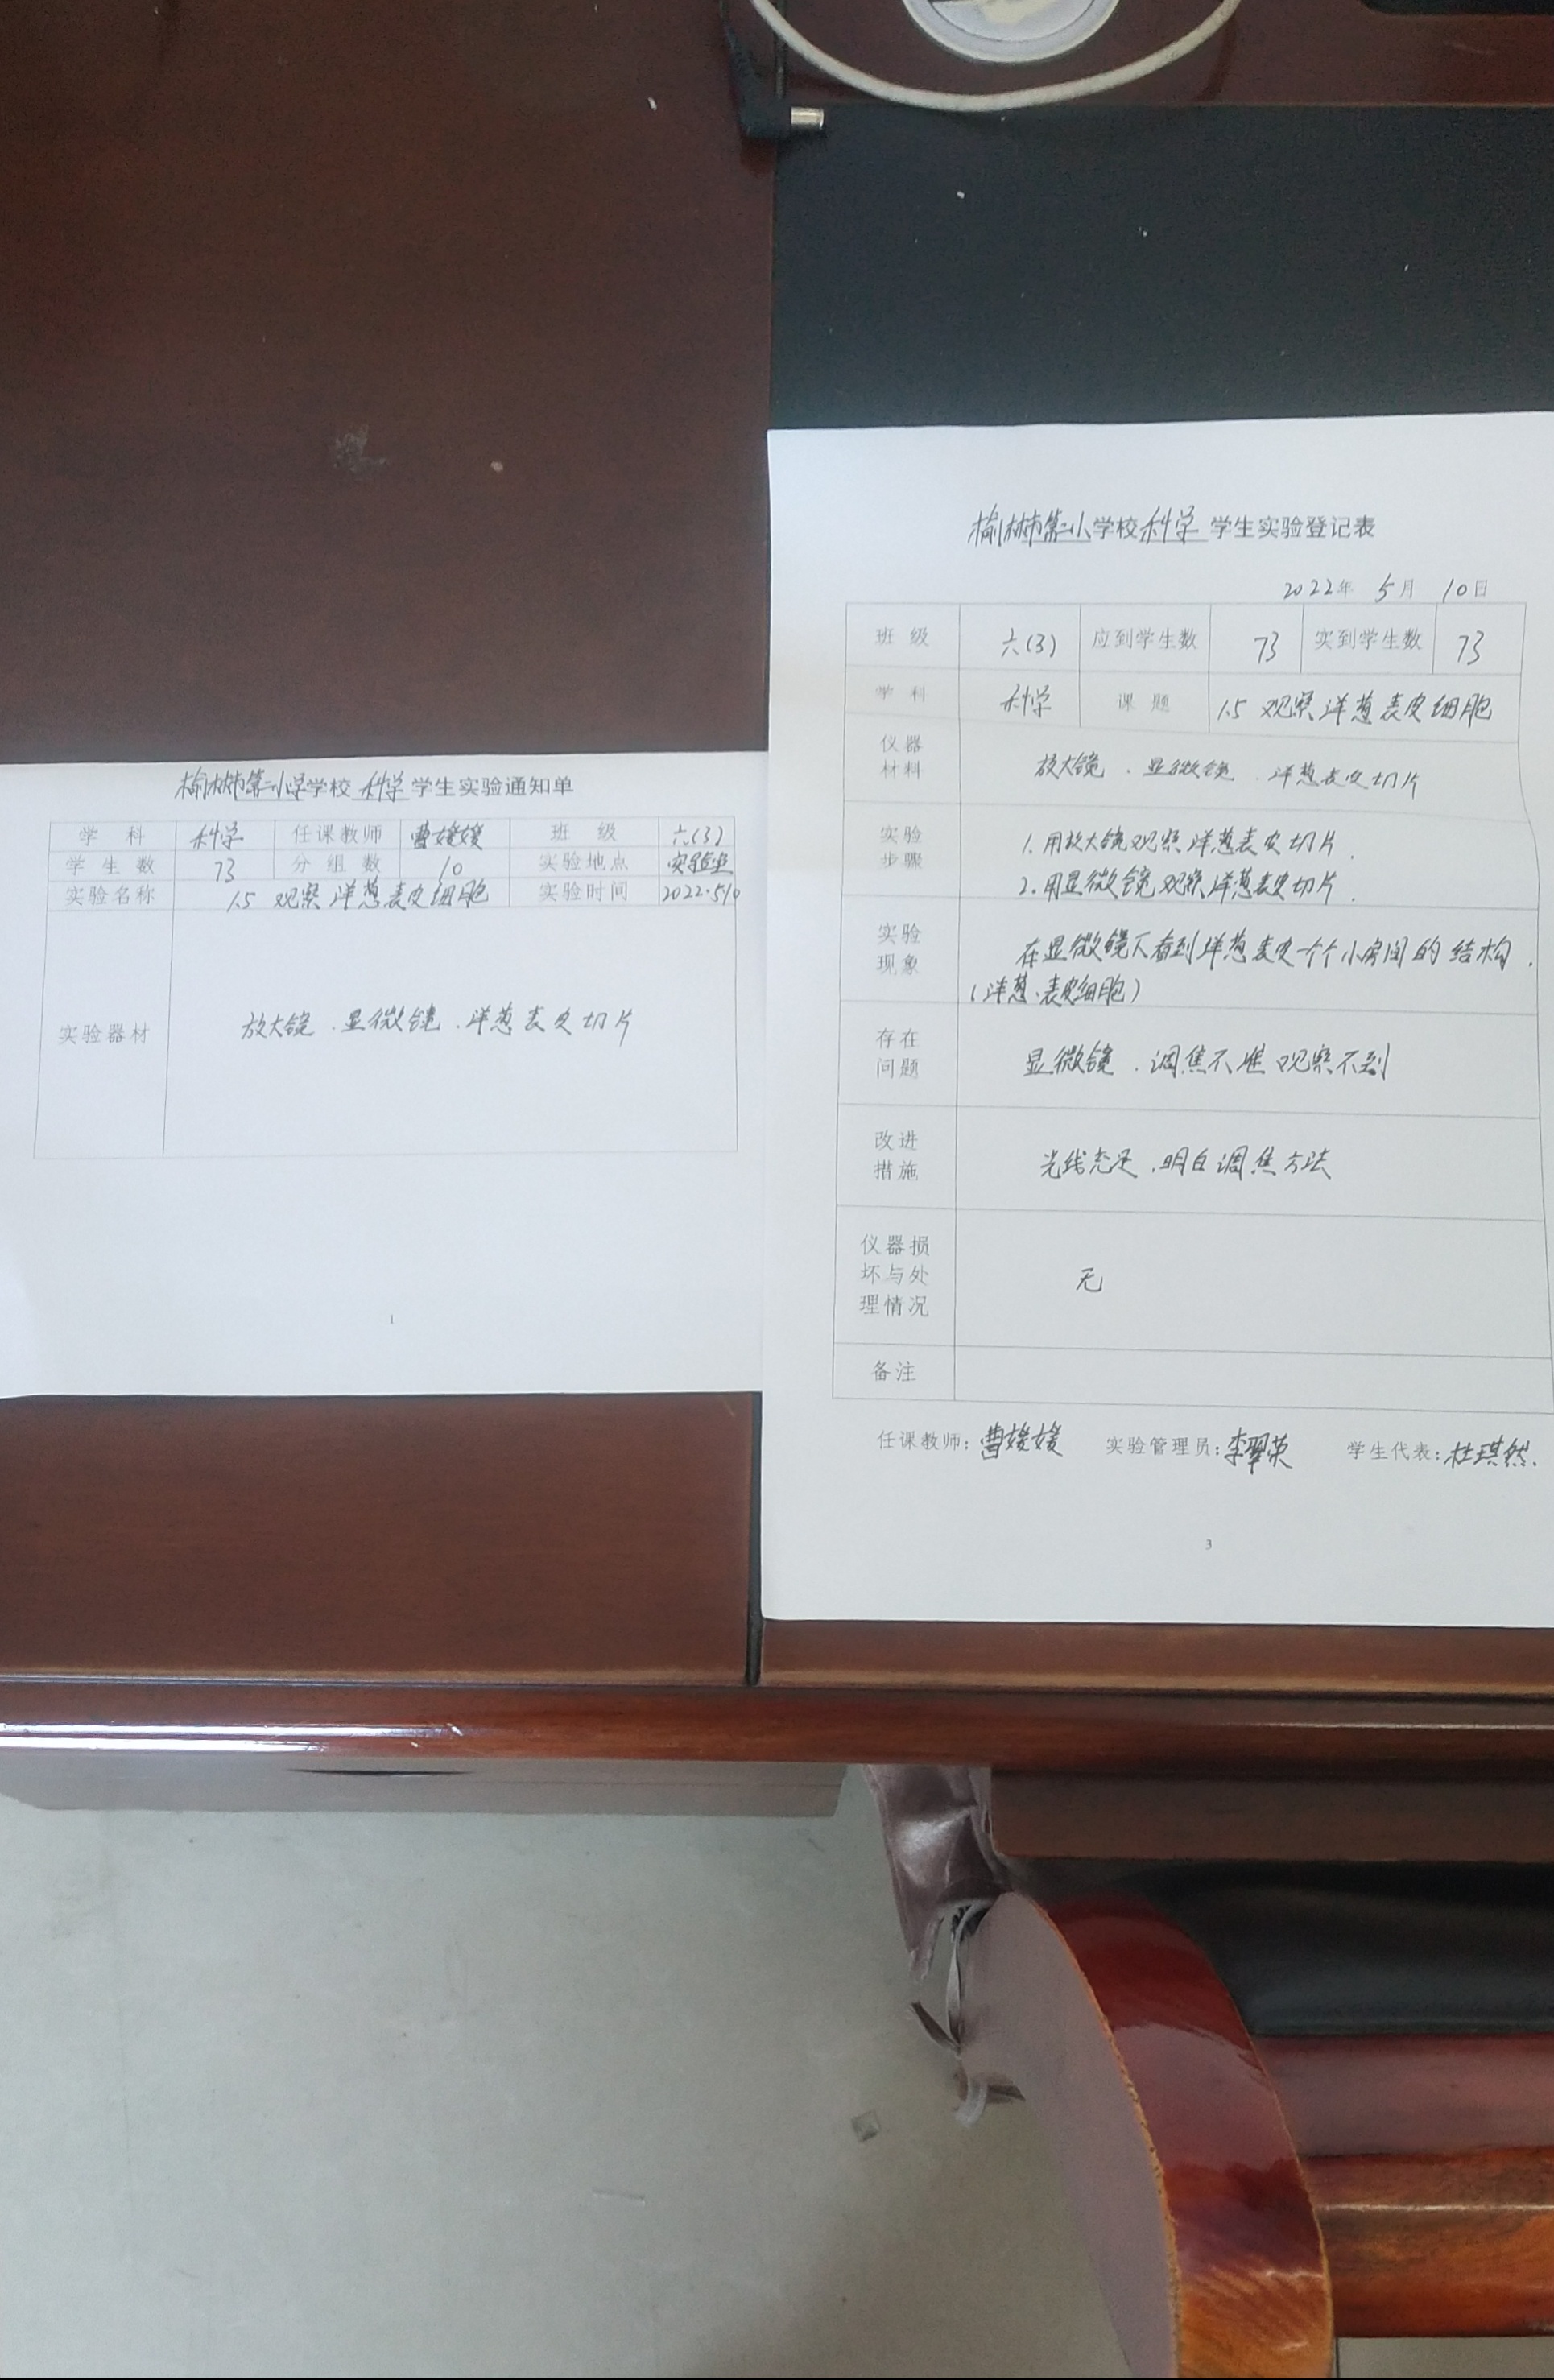 榆树市第二小学学校 科学 学生实验通知单
学 科 科学 任课教师 曹媛媛 班 级 六(3)
学 生 数 73 分 组 数 10 实验地点 实验室
实验名称 1.5 观察洋葱表皮细胞 实验时间 2022.5.10
实验器材 放大镜、显微镜、洋葱表皮切片
1
榆树市第二小学校科学 学生实验登记表
2022年 5月 10日
班 级 六(3) 应到学生数 73 实到学生数 73
学 科 科学 课 题 1.5 观察洋葱表皮细胞
仪器
材料
放大镜、显微镜、洋葱表皮切片
实验
步骤
1.用放大镜观察洋葱表皮切片.
2.用显微镜观察洋葱表皮切片.
实验
现象
在显微镜下看到洋葱表皮一个个小房间的结构.
(洋葱表皮细胞)
存在
问题
显微镜、调焦不准观察不到
改进
措施
光线充足、明白调焦方法
仪器损
坏与处
理情况
无
备注
任课教师:曹媛媛 实验管理员:李翠英 学生代表:杜琪然.
3